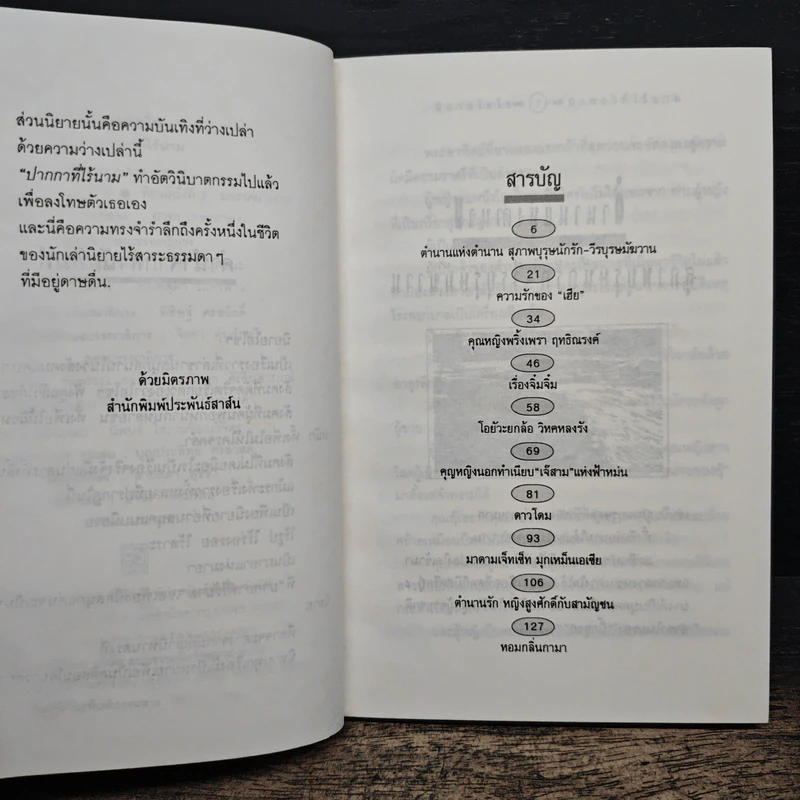 ส่วนนิยายนั้นคือความบันเทิงที่ว่างเปล่า
ด้วยความว่างเปล่านี้
“ปากกาที่ไร้นาม” ทำอัตวินิบาตกรรมไปแล้ว
เพื่อลงโทษตัวเธอเอง
และนี่คือความทรงจำรำลึกถึงครั้งหนึ่งในชีวิต
ของนักเล่านิยายไร้สาระธรรมดาๆ
ที่มีอยู่ดาษดื่น.
ด้วยมิตรภาพ
สำนักพิมพ์ประพันธ์สาส์น
สารบัญ
6
ตำนานแห่งตำนาน สุภาพบุรุษนักรัก-วีรบุรุษมัฆวาน
21
ความรักของ “เฮีย”
34
คุณหญิงพริ้งเพรา ฤทธิณรงค์
46
เรื่องจิ๋มจิ๋ม
58
โอยัวะยกล้อ วิหคหลงรัง
69
คุญหญิงนอกทำเนียบ“เจ๊สาม”แห่งฟ้าหม่น
81
ดาวโดม
93
มาดามเจ็ทเซ็ท มุกเหม็นเอเซีย
106
ตำนานรัก หญิงสูงศักดิ์กับสามัญชน
127
หอมกลิ่นกามา